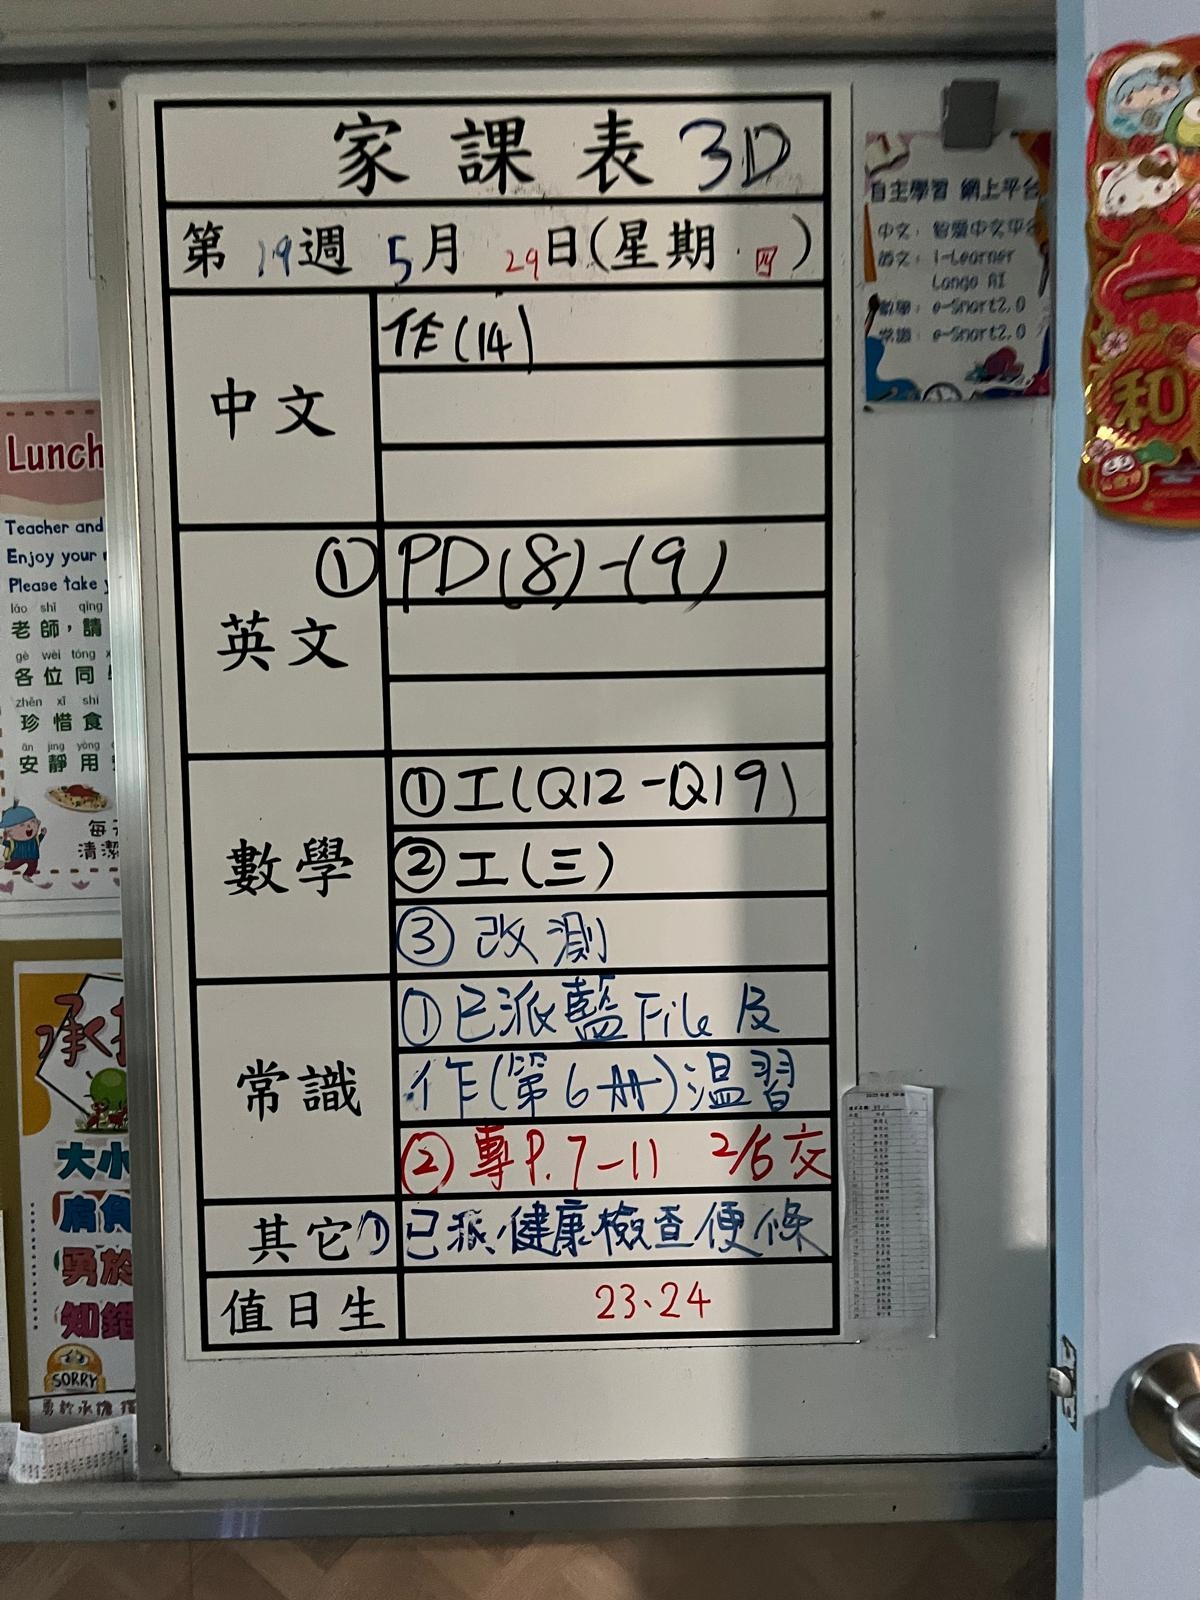 家課表 3D
第19週 5月 29日(星期 四)
中文
作(14)
英文
① PD(8)-(9)
數學
① 工(Q12-Q19)
② 工(三)
③ 改測
常識
① 已派藍File及
作(第6冊)溫習
② 專P.7-11 2/6交
其它
① 已派健康檢查便條
值日生
23、24
自主學習 網上平台
中文：智愛中文平台
英文：i-Learner
Lango AI
數學：e-Smart2.0
常識：e-Smart2.0
Lunch
Teacher and
Enjoy your
Please take
lǎo shī qǐng
老師，請
gè wèi tóng
各位同
zhēn xī shí
珍惜食
ān jìng yòng
安靜用
清潔
承
大小
肩負
勇於
知錯
SORRY
勇於承擔
和